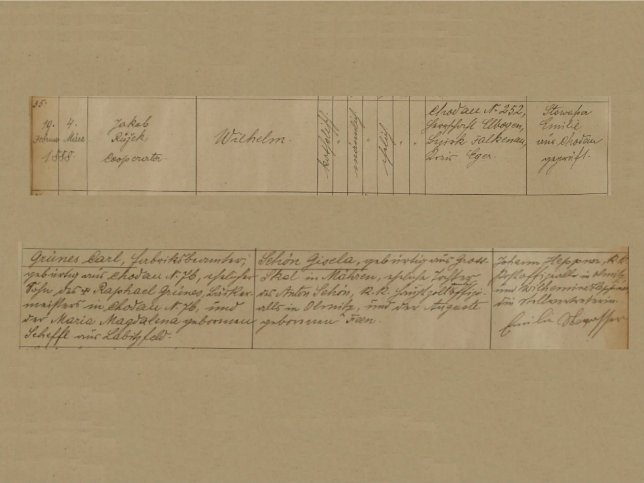 35.
19. Februar 4. März
1888
Jakob
Růžek
Cooperator
Wilhelm.
katholisch
männlich
ehelich
Chodau N. 252,
Elbogen,
Bezirk Falkenau,
Kreis Eger
Stowasser
Emilie
aus Chodau
geprüft.
Grünes Carl, Fabriksbeamter,
gebürtig aus Chodau N. 76, ehelicher
Sohn des Raphael Grünes,
meisters in Chodau N. 76, und
der Maria Magdalena geborenen
Scheffl aus
Schön Gisela, gebürtig aus Gross
in Mähren, eheliche Tochter
des Anton Schön, k.k.
in Olmütz, und der Auguste
geborenen
Johann Heppner, k.k.
Postoffizial in Olmütz
und Wilhemine
Emilie Stowasser